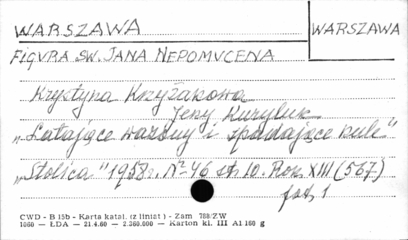 WARSZAWA
WARSZAWA
FIGVRA SW. JANA NEPOMVCENA
Krystyna Krzyżakowa
Jerzy Kuryluk
„Latające wazony i spadające kule"
„Stolica" 1958 r. Nr 46 str. 10. Rok XIII (567)
fot. 1
CWD - B 15b - Karta katal. (z liniat) - Zam 788/ZW
1060 — ŁDA — 21.4.60 — 2.360.000 — Karton kl. III A1 160 g